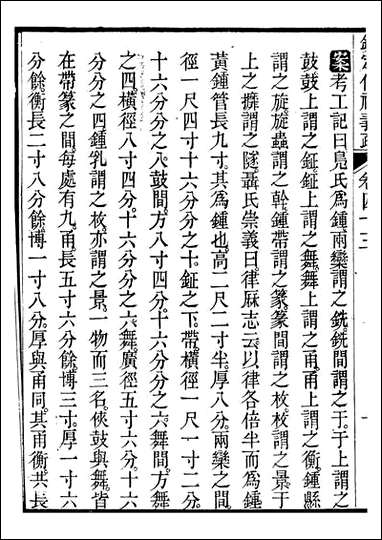 欽定儀禮義疏 卷四十三
案考工記曰鳧氏爲鍾兩欒謂之銑銑間謂之于于上謂之
鼓鼓上謂之鉦鉦上謂之舞舞上謂之甬甬上謂之衡鍾縣
謂之旋旋蟲謂之幹鍾帶謂之篆篆間謂之枚枚謂之景于
上之攠謂之隧聶氏崇義曰律厤志云以律各倍半而爲鍾
黃鍾管長九寸其爲鍾也高二尺二寸半厚八分兩欒之間
徑一尺四寸十六分寸之十鉦之下帶橫徑一尺一寸二分
十六分分之八鼓間方八寸四分十六分分之六舞間方舞
之四橫徑八寸四分十六分分之六舞廣徑五寸六分十六
分分之四鍾乳謂之枚亦謂之景一物而三名俠鼓與舞皆
在帶篆之間每處有九甬長五寸六分餘博三寸厚一寸六
分餘衡長二寸八分餘博一寸八分厚與甬同其甬衡共長